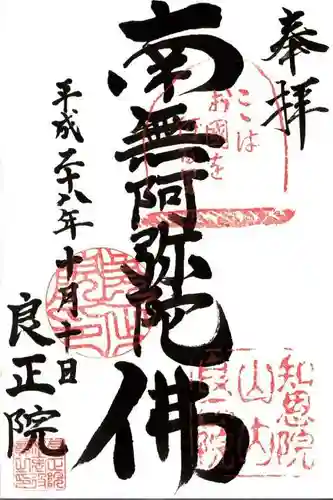 奉拝
ここは
お国を
南無阿弥陀佛
平成二十八年十月十日
良正院
知恩院
山内
良正院